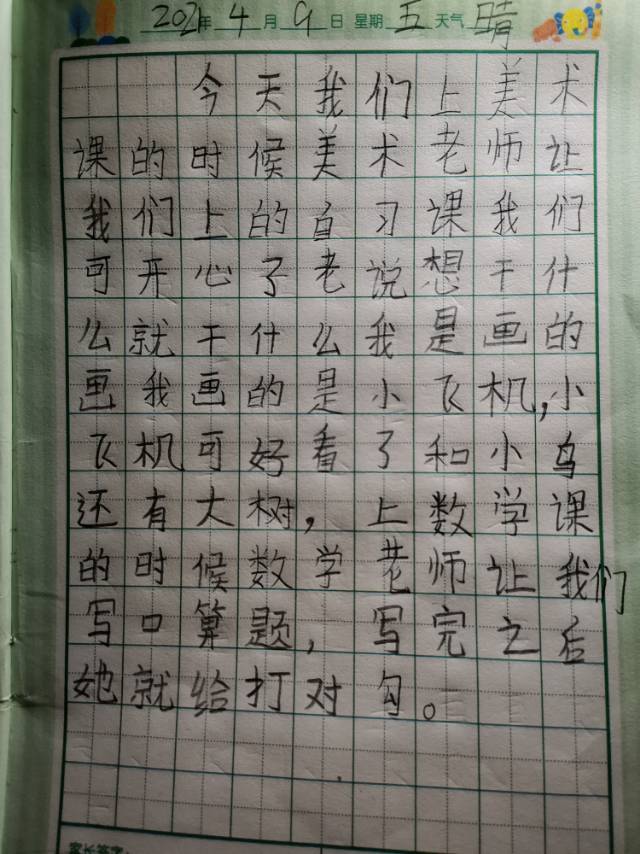 2021年 4月 9日 星期 五 天气 晴
今天我们上美术
课的时候美术老师让
我们上的自习课我们
可开心了老说想干什
么就干什么我是画的
画我画的是小飞机,小
飞机可好看了和小鸟
还有大树，上数学课
的时候数学老师让我们
写口算题，写完之后
她就给打对勾。